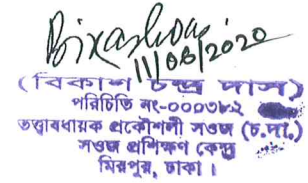 Bikashdas
11/08/2020
(বিকাশ চন্দ্র দাস)
পরিচিতি নং-০০০৩৮২
তত্ত্বাবধায়ক প্রকৌশলী সওজ (চ.দা.)
সওজ প্রশিক্ষণ কেন্দ্র
মিরপুর, ঢাকা।